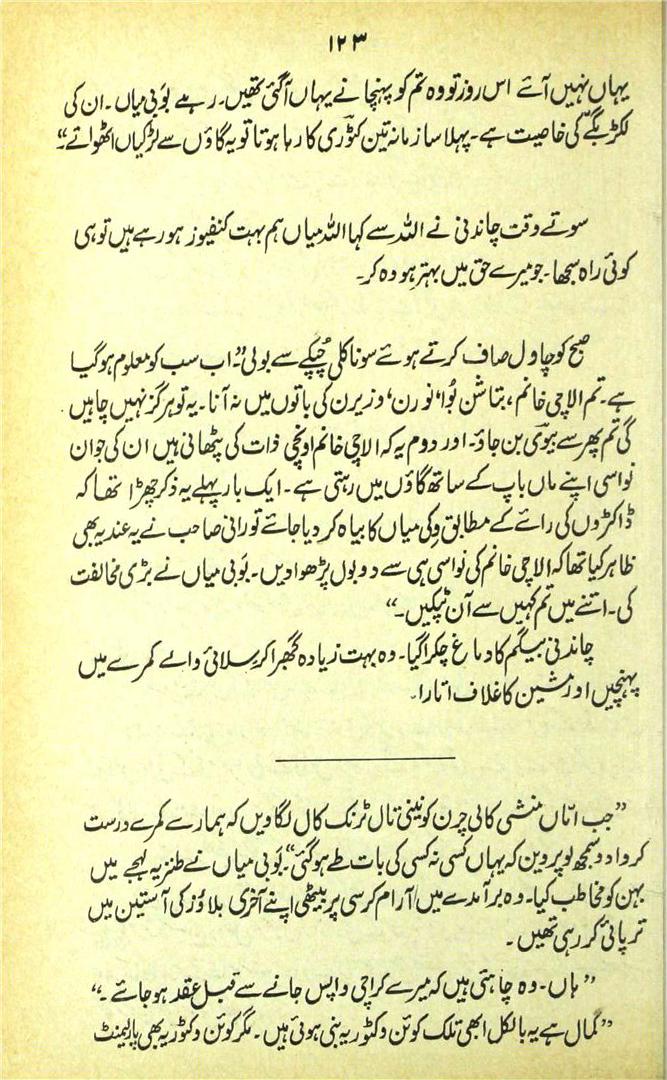 ۱۲۳
یہاں نہیں آئے اس روز تو وہ تم کو پہنچانے یہاں آگئی تھیں۔ رہے بوبی میاں۔ ان کی
لکڑبگے کی خاصیت ہے۔ پہلا سا زمانہ تین کٹوری کا رہا ہوتا تو یہ گاؤں سے لڑکیاں اٹھواتے۔“
سوتے وقت چاندنی نے اللہ سے کہا اللہ میاں ہم بہت کنفیوز ہو رہے ہیں تو ہی
کوئی راہ سجھا۔ جو میرے حق میں بہتر ہو وہ کر۔
صبح کو چاول صاف کرتے ہوئے سونا کلی چپکے سے بولی ”اب سب کو معلوم ہوگیا
ہے۔ تم الاچی خانم، بتاشن بُوا، نورن، وزیرن کی باتوں میں نہ آنا۔ یہ تو ہرگز نہیں چاہیں
گی تم پھر سے بیوی بن جاؤ۔ اور دوم یہ کہ الاچی خانم اونچی ذات کی پٹھانی ہیں ان کی جوان
نواسی اپنے ماں باپ کے ساتھ گاؤں میں رہتی ہے۔ ایک بار پہلے یہ ذکر چھڑا تھا کہ
ڈاکٹروں کی رائے کے مطابق وکی میاں کا بیاہ کر دیا جائے تو رانی صاحب نے یہ عندیہ بھی
ظاہر کیا تھا کہ الاچی خانم کی نواسی ہی سے دو بول پڑھوا دیں۔ بوبی میاں نے بڑی مخالفت
کی۔ اتنے میں تم کہیں سے آن ٹپکیں۔“
چاندنی بیگم کا دماغ چکرا گیا۔ وہ بہت زیادہ گھبرا کر سلائی والے کمرے میں
پہنچیں اور مشین کا غلاف اتارا۔
”جب امّاں منشی کالی چرن کو نینی تال ٹرنک کال لگا ویں کہ ہمارے کمرے درست
کروا دو سمجھ لو پروین کہ یہاں کسی نہ کسی کی بات طے ہوگئی“۔ بوبی میاں نے طنزیہ لہجے میں
بہن کو مخاطب کیا۔ وہ برآمدے میں آرام کرسی پر بیٹھی اپنے آخری بلاؤز کی آستین میں
ترپائی کر رہی تھیں۔
”ہاں۔ وہ چاہتی ہیں کہ میرے کراچی واپس جانے سے قبل عقد ہو جائے۔“
”کمال ہے یہ بالکل ابھی تلک کوئن وکٹوریہ بنی ہوئی ہیں۔ مگر کوئن وکٹوریہ بھی پارلیمنٹ